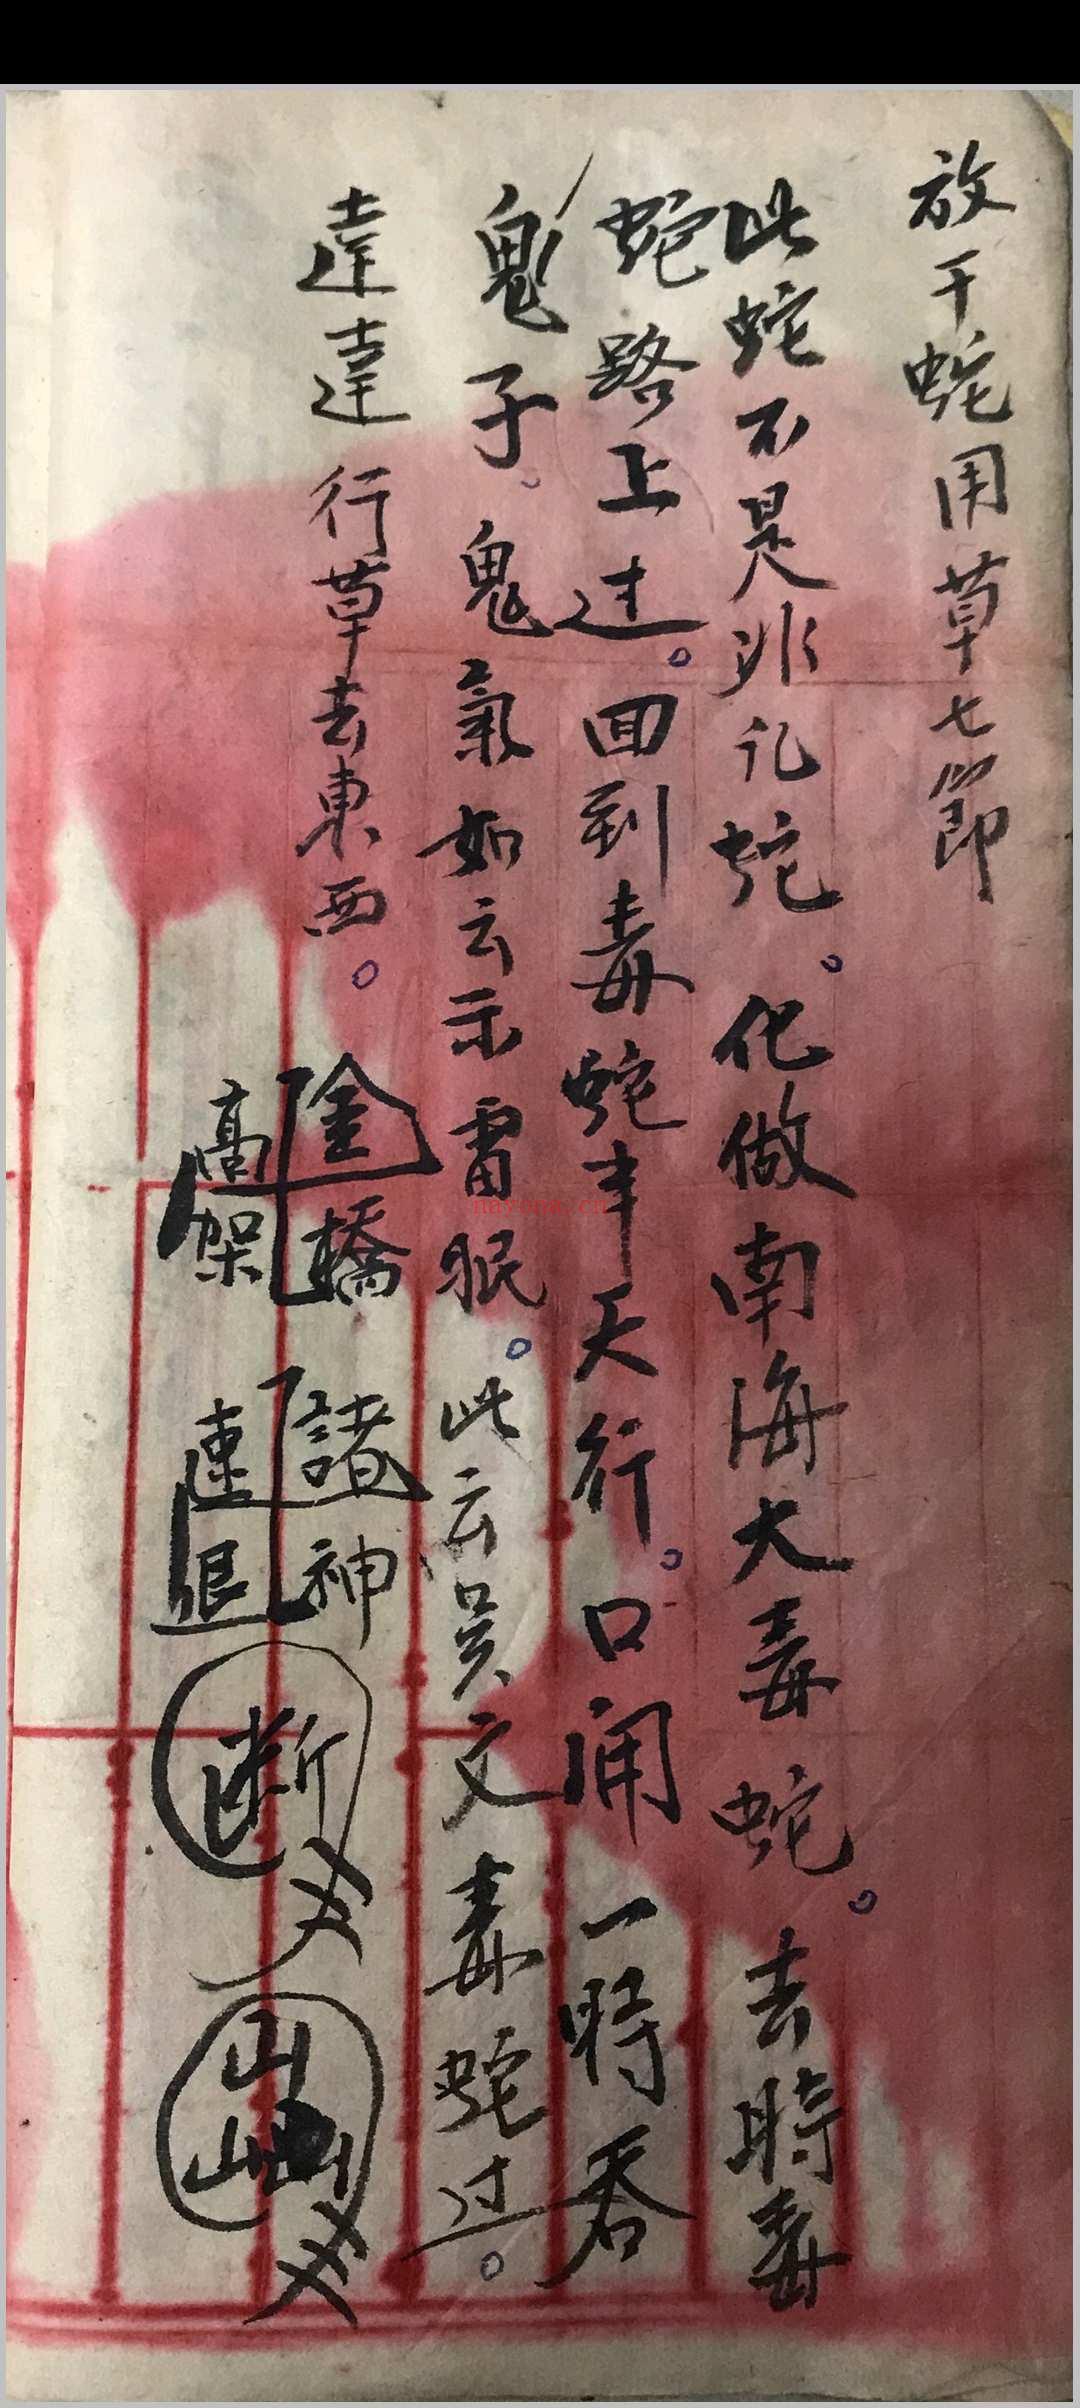 放干蛇用草七節
此蛇不是非礼蛇。化做南海大毒蛇。去時毒
蛇路上过。回到毒蛇半天行。口闹一時吞
鬼子。鬼氣如云示雷眼。此云吴文毒蛇过。
達達行草去東西。
金橋 諸神
高架 速退
断
山山山
nayona.cn